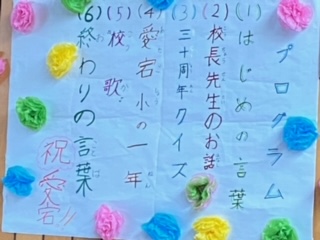 プログラム
(1)はじめの言葉
(2)校長先生のお話
(3)三十周年クイズ
(4)愛宕小の一年
(5)校歌
(6)終わりの言葉
祝愛宕!!